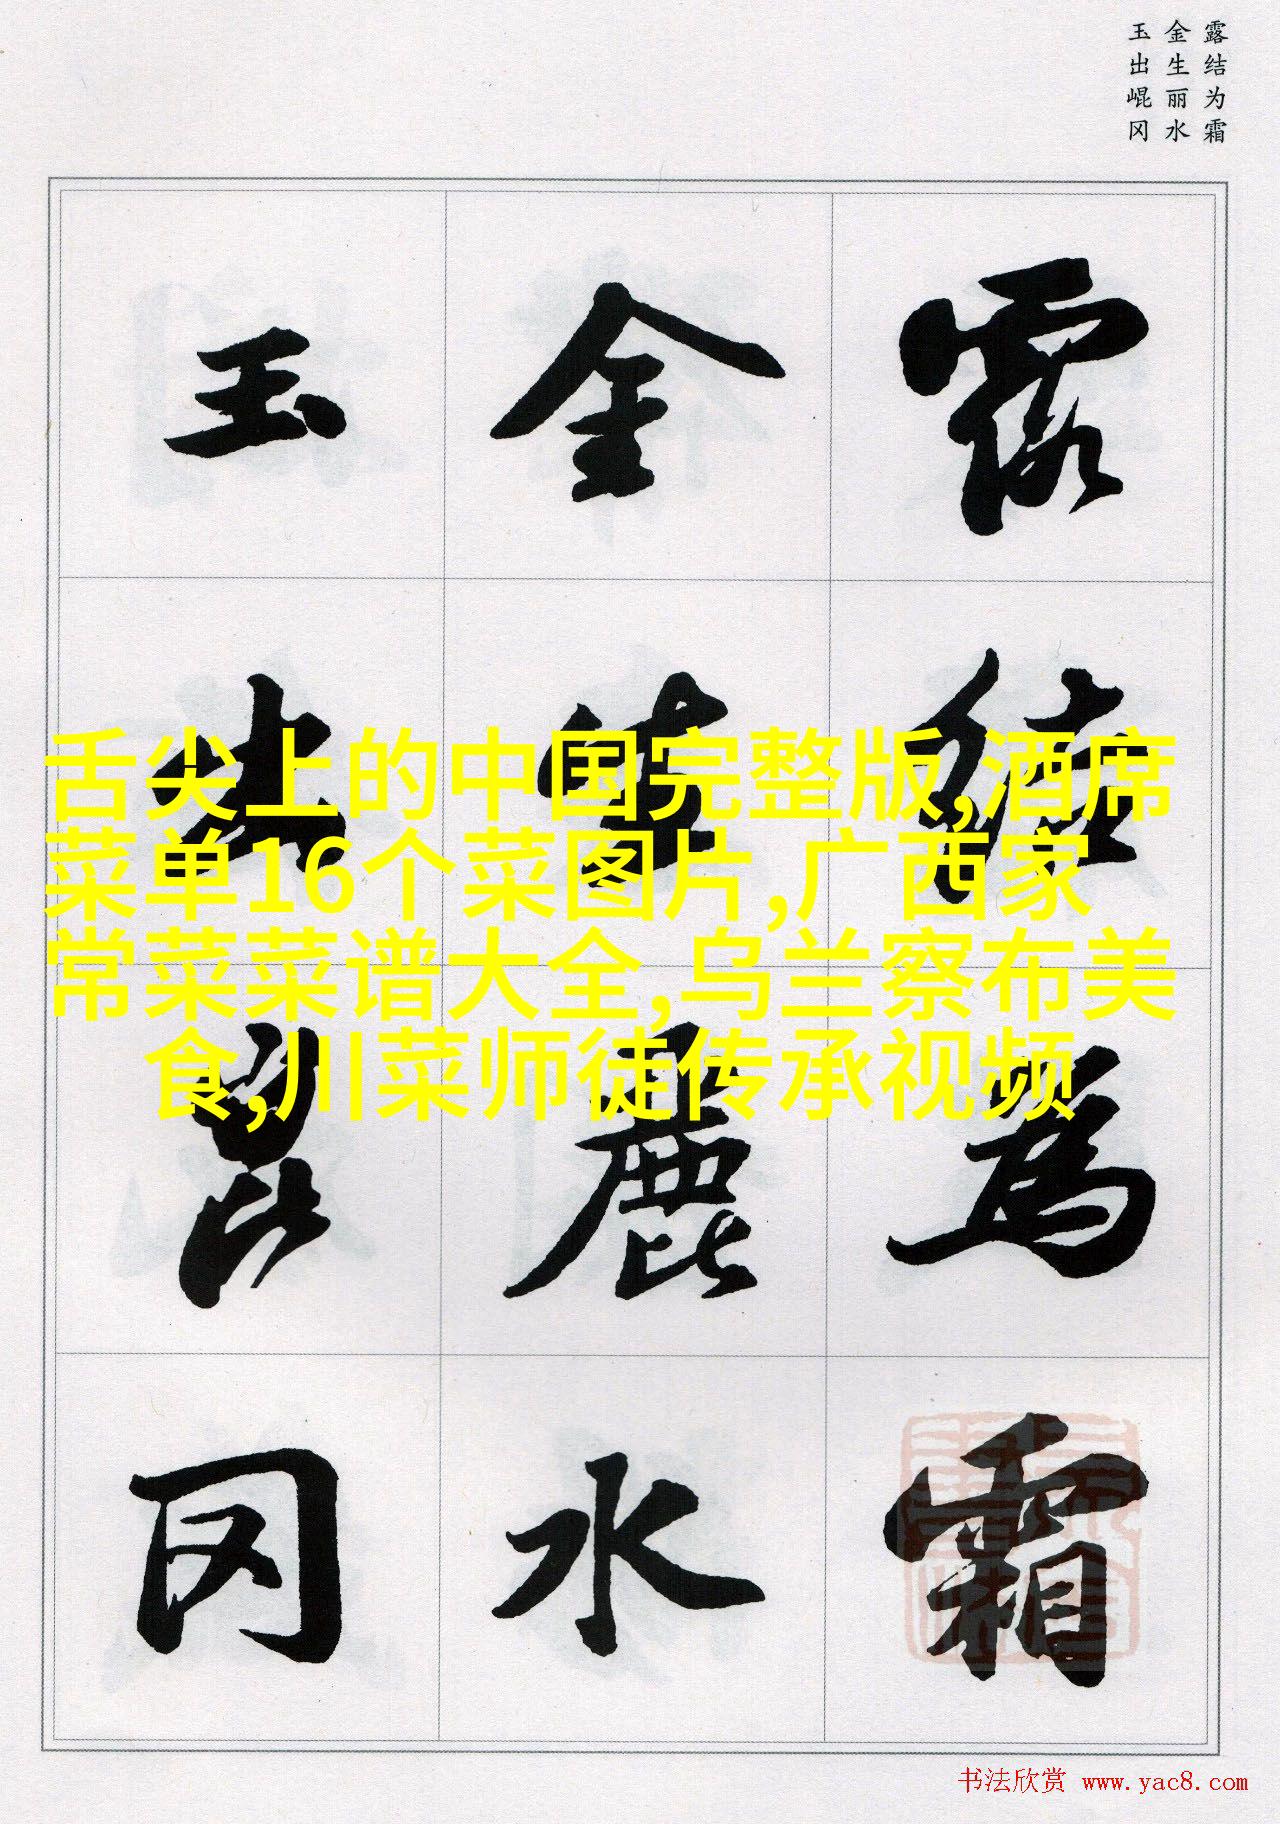 露结为霜
金生丽水
玉出崐冈
露結為霜
金生麗水
玉出崑冈
舌尖上的中国完整版,酒席
菜单16个菜图片,广西家
常菜菜谱大全,乌兰察布美
食,川菜师徒传承视频
书法欣赏 www.yac8.com